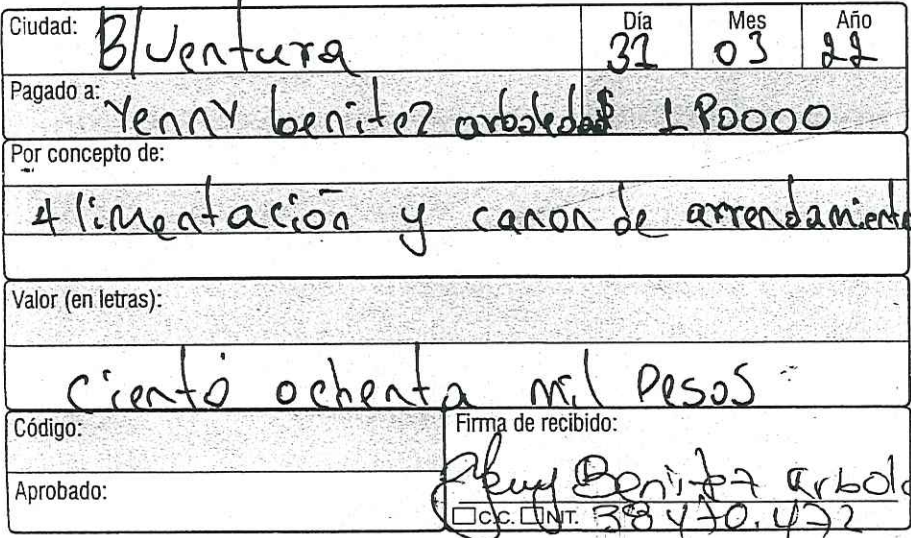 Ciudad: B/Ventura Día 31 Mes 03 Año 22
Pagado a: Yenny benitez arboleda $ 180000
Por concepto de:
Alimentación y canon de arrendamiento
Valor (en letras):
ciento ochenta mil pesos
Código:
Firma de recibido:
Aprobado:
Benitez arbol
C.C. NIT. 38470.472